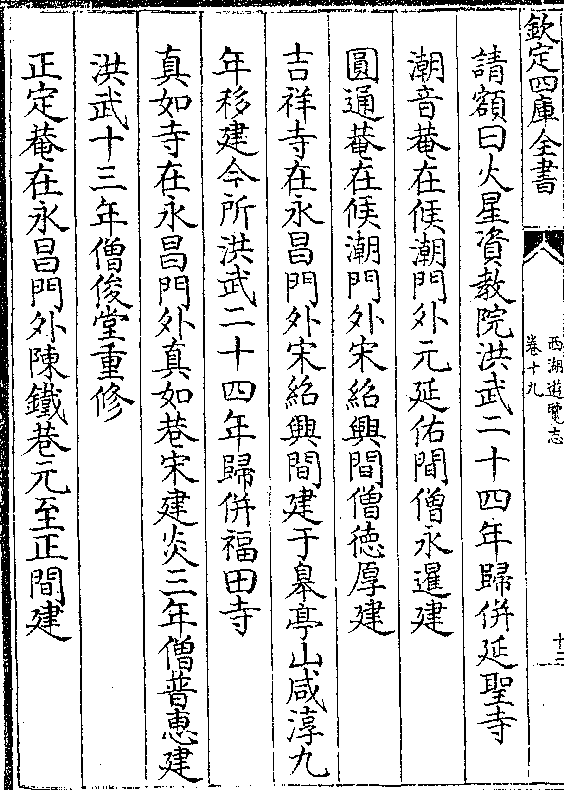 欽定四庫全書
西湖遊覽志
卷十九
請額曰火星資教院洪武二十四年歸併延聖寺
潮音菴在候潮門外元延佑間僧永暹建
圓通菴在候潮門外宋紹興間僧德厚建
吉祥寺在永昌門外宋紹興間建于皋亭山咸淳九
年移建今所洪武二十四年歸併福田寺
真如寺在永昌門外真如巷宋建炎三年僧普惠建
洪武十三年僧俊堂重修
正定菴在永昌門外陳鐵巷元至正間建